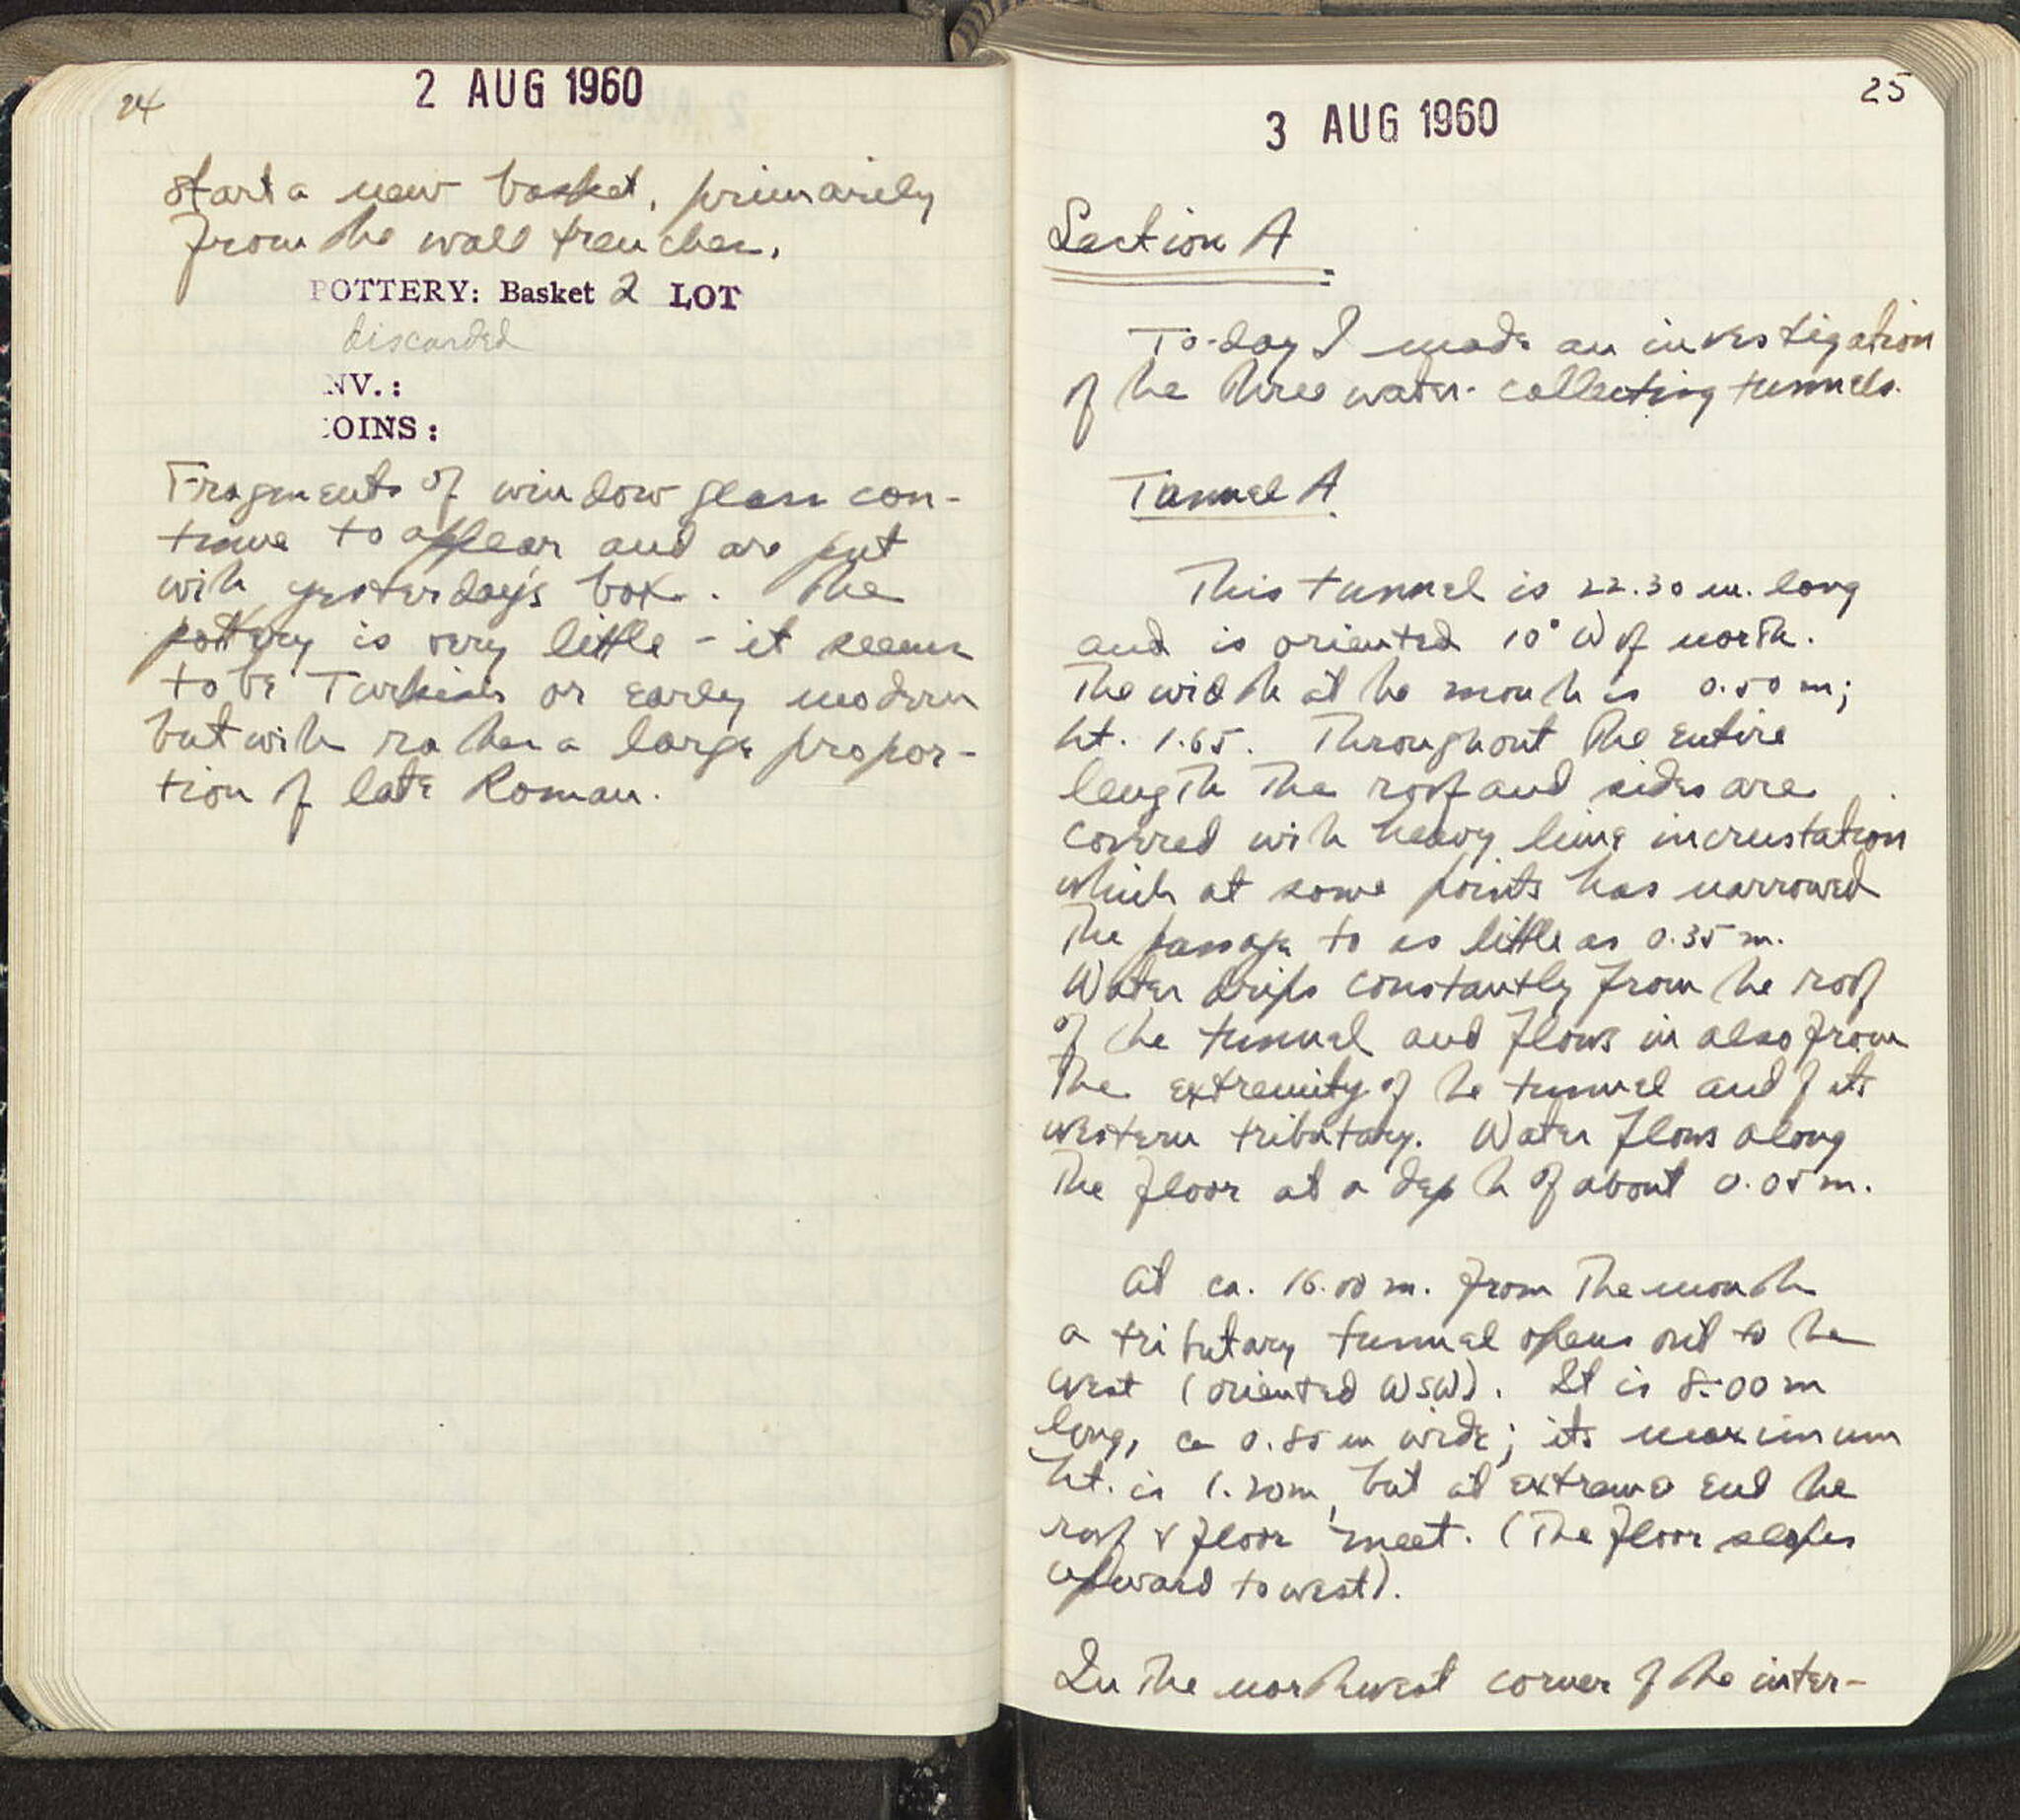 24
2 AUG 1960
start a new basket, primarily
from the wall trenches.
POTTERY: Basket 2 LOT
discarded
NV.:
OINS:
Fragments of window glass con-
tinue to appear and are put
with yesterday's box. The
pottery is very little - it seems
to be Turkish or early modern
but with rather a large propor-
tion of late Roman.
25
3 AUG 1960
Section A
To-day I made an investigation
of the three water-collecting tunnels.
Tunnel A
This tunnel is 22.30 m. long
and is oriented 10° W of north.
The width at the mouth is 0.50 m;
ht. 1.65. Throughout the entire
length the roof and sides are
covered with heavy lime incrustation
which at some points has narrowed
the passage to as little as 0.35 m.
Water drips constantly from the roof
of the tunnel and flows in also from
the extremity of the tunnel and of its
western tributary. Water flows along
the floor at a depth of about 0.05 m.
At ca. 16.00 m. from the mouth
a tributary tunnel opens out to the
west (oriented WSW). It is 8.00 m
long, ca wide; its maximum
ht. is 1.20m, but at extreme end the
roof & floor meet. (The floor slopes
upward to west).
In the northwest corner of the inter-